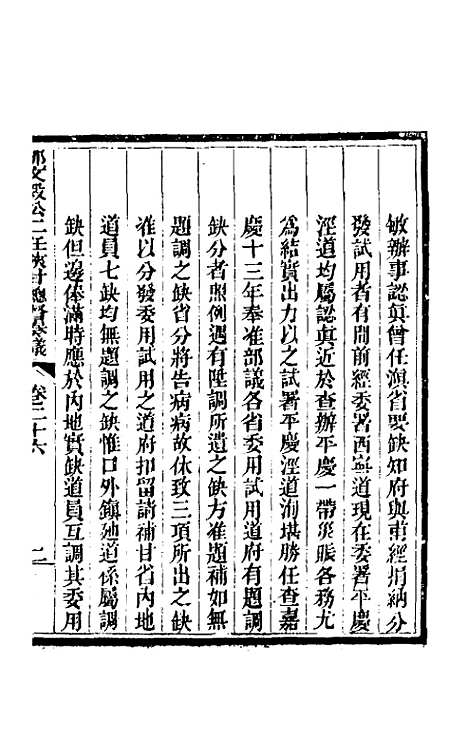 敏辦事認眞曾任滇省要缺知府與甫經捐納分
發試用者有間前經委署西寧道現在委署平慶
涇道均屬認眞近於查辦平慶一帶災賑各務尤
為結實出力以之試署平慶涇道洵堪勝任查嘉
慶十三年奉准部議各省委用試用道府有題調
缺分者照例遇有陞調所遺之缺方准題補如無
題調之缺省分將告病病故休致三項所出之缺
准以分發委用試用之道府扣留請補甘省內地
道員七缺均無題調之缺惟口外鎮迪道係屬調
缺但邊俸滿時應於內地實缺道員互調其委用
那文毅公二任陝甘總督奏議
卷二十六
二